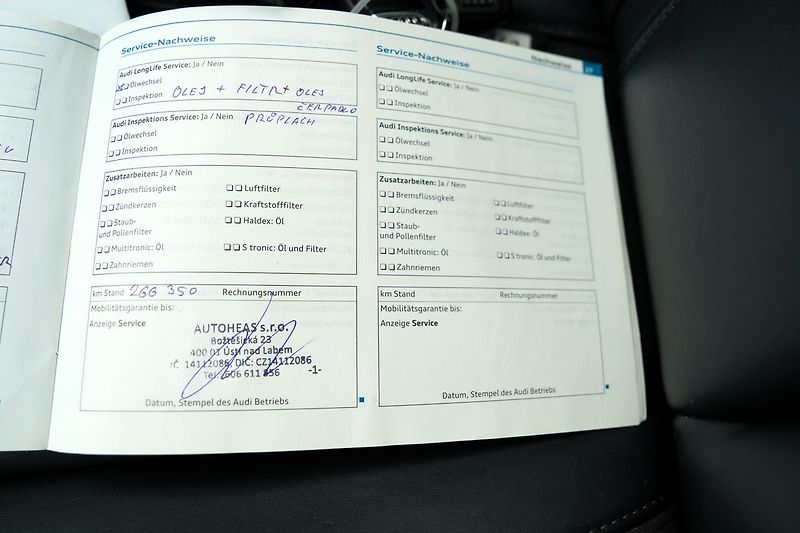 Service-Nachweise
Audi LongLife Service: Ja / Nein
Ölwechsel
Inspektion
OLEJ + FILTR + OLEJ
ČERPADLO
Audi Inspektions Service: Ja / Nein
PRŮPLACH
Ölwechsel
Inspektion
Zusatzarbeiten: Ja / Nein
Bremsflüssigkeit
Luftfilter
Zündkerzen
Kraftstofffilter
Staub-
und Pollenfilter
Haldex: Öl
Multitronic: Öl
S tronic: Öl und Filter
Zahnriemen
km Stand 266 350 Rechnungsnummer
Mobilitätsgarantie bis:
Anzeige Service
AUTOHEAS s.r.o.
Božtěšická 23
400 01 Ústí nad Labem
IČ. 14112086, DIČ: CZ14112086
Tel. 606 611 856 -1-
Datum, Stempel des Audi Betriebs
Service-Nachweise
Nachweise 27
Audi LongLife Service: Ja / Nein
Ölwechsel
Inspektion
Audi Inspektions Service: Ja / Nein
Ölwechsel
Inspektion
Zusatzarbeiten: Ja / Nein
Bremsflüssigkeit
Luftfilter
Zündkerzen
Kraftstofffilter
Staub-
und Pollenfilter
Haldex: Öl
Multitronic: Öl
S tronic: Öl und Filter
Zahnriemen
km Stand Rechnungsnummer
Mobilitätsgarantie bis:
Anzeige Service
Datum, Stempel des Audi Betriebs